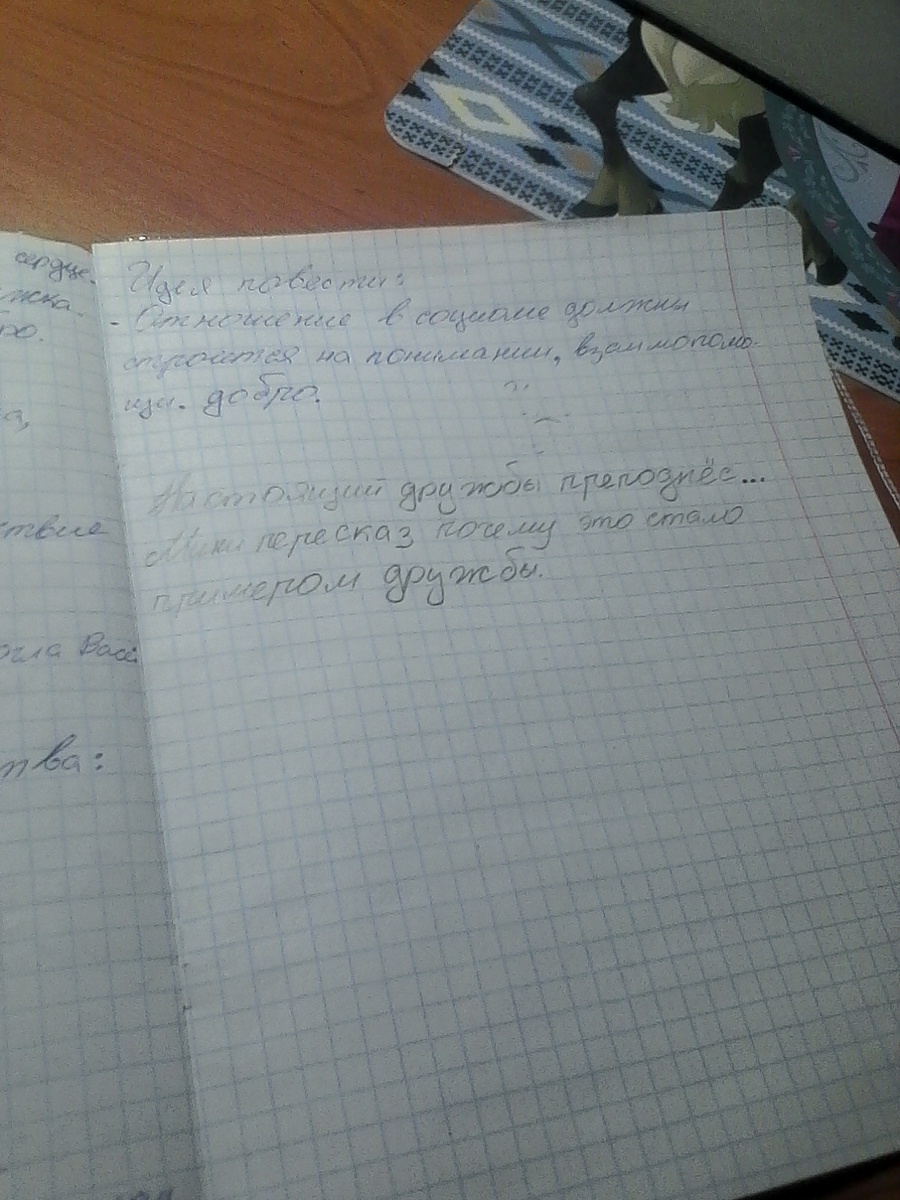 сердце.
жка.
ро.
а,
ствие
огла Васи
тва:
Идея повести:
- Отношение в социоме должны
строится на понимании, взаимопомо-
щи. добро.
Настоящий дружбы преподнёс...
Мини пересказ почему это стало
примером дружбы.